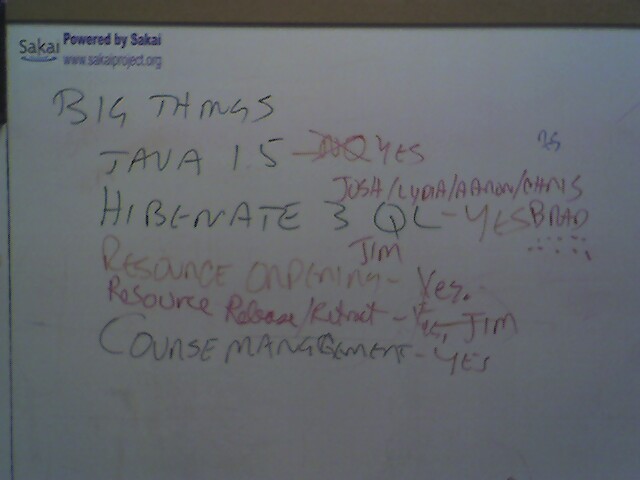 Sakai Powered by Sakai
www.sakaiproject.org
BIG THINGS
JAVA 1.5 - NO YES
JOSH/LYDIA/AARON/CHRIS
HIBERNATE 3 QL - YES BRAD
JIM
RESOURCE ORDERING - Yes.
Resource Release/Retract - Yes, JIM
COURSE MANAGEMENT - YES